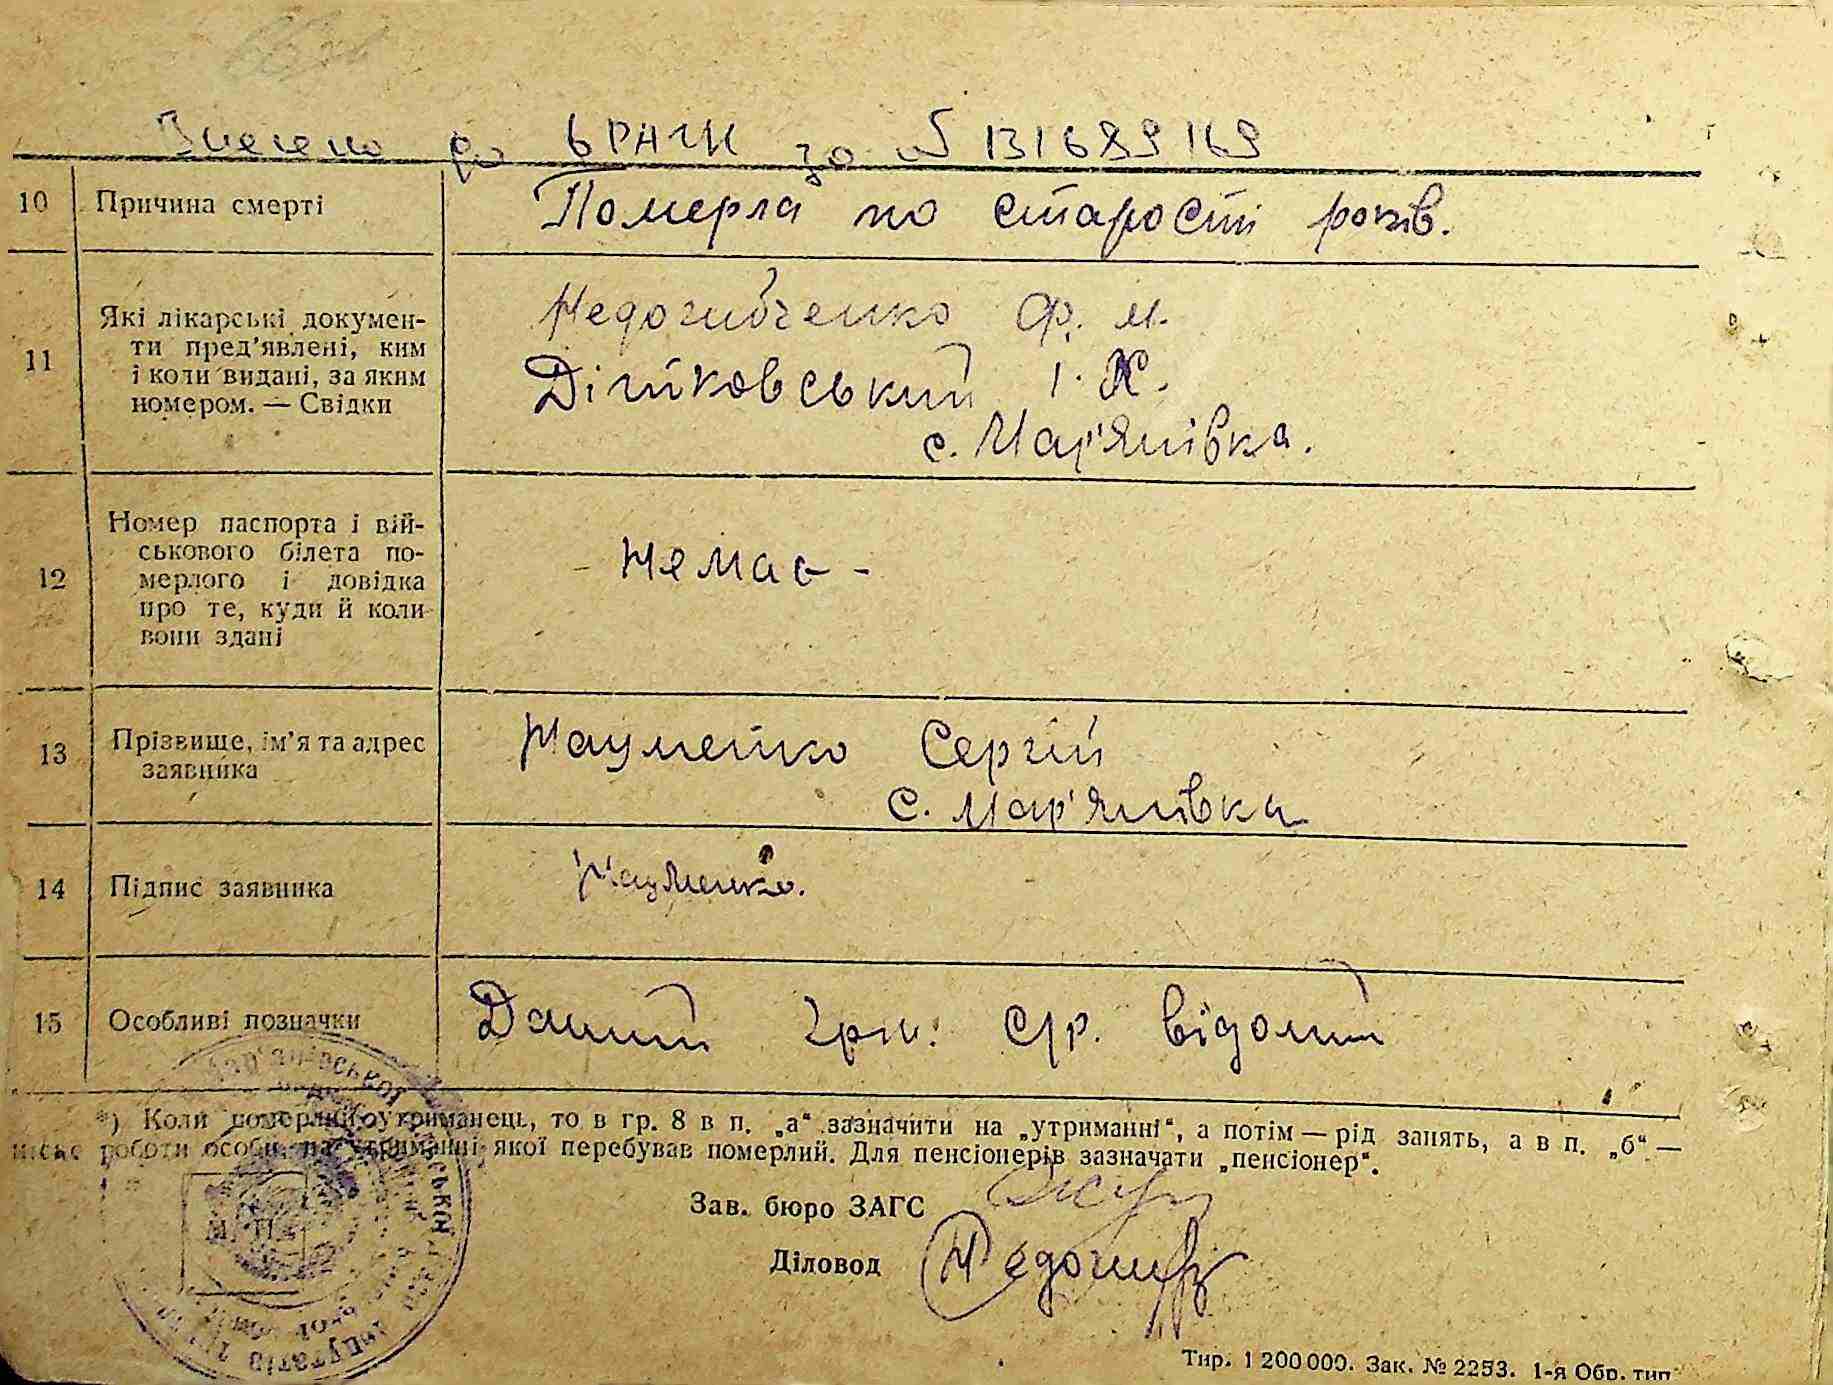 Внесено до ЬРАЧН за № 131699169
10 Причина смерті
Померла по старості років.
11 Які лікарські докумен-
ти пред'явлені, ким
і коли видані, за яким
номером. — Свідки
Недогибченко Ф. М.
Дітковський І. Х.
с. Мар'янівка.
12 Номер паспорта і вій-
ськового білета по-
мерлого і довідка
про те, куди й коли
вони здані
- Немає -
13 Прізвище, ім'я та адрес
заявника
Науменко Сергій
с. Мар'янівка
14 Підпис заявника
Науменко.
15 Особливі позначки
Даний грн. с/р. відомий
*) Коли померлий оутриманець, то в гр. 8 в п. „а“ зазначити на „утриманні“, а потім — рід занять, а в п. „б“ —
місце роботи особи, на утриманні якої перебував померлий. Для пенсіонерів зазначати „пенсіонер“.
Зав. бюро ЗАГС
М. П.
Діловод
Тир. 1 200 000. Зак. № 2253. 1-я Обр. тип